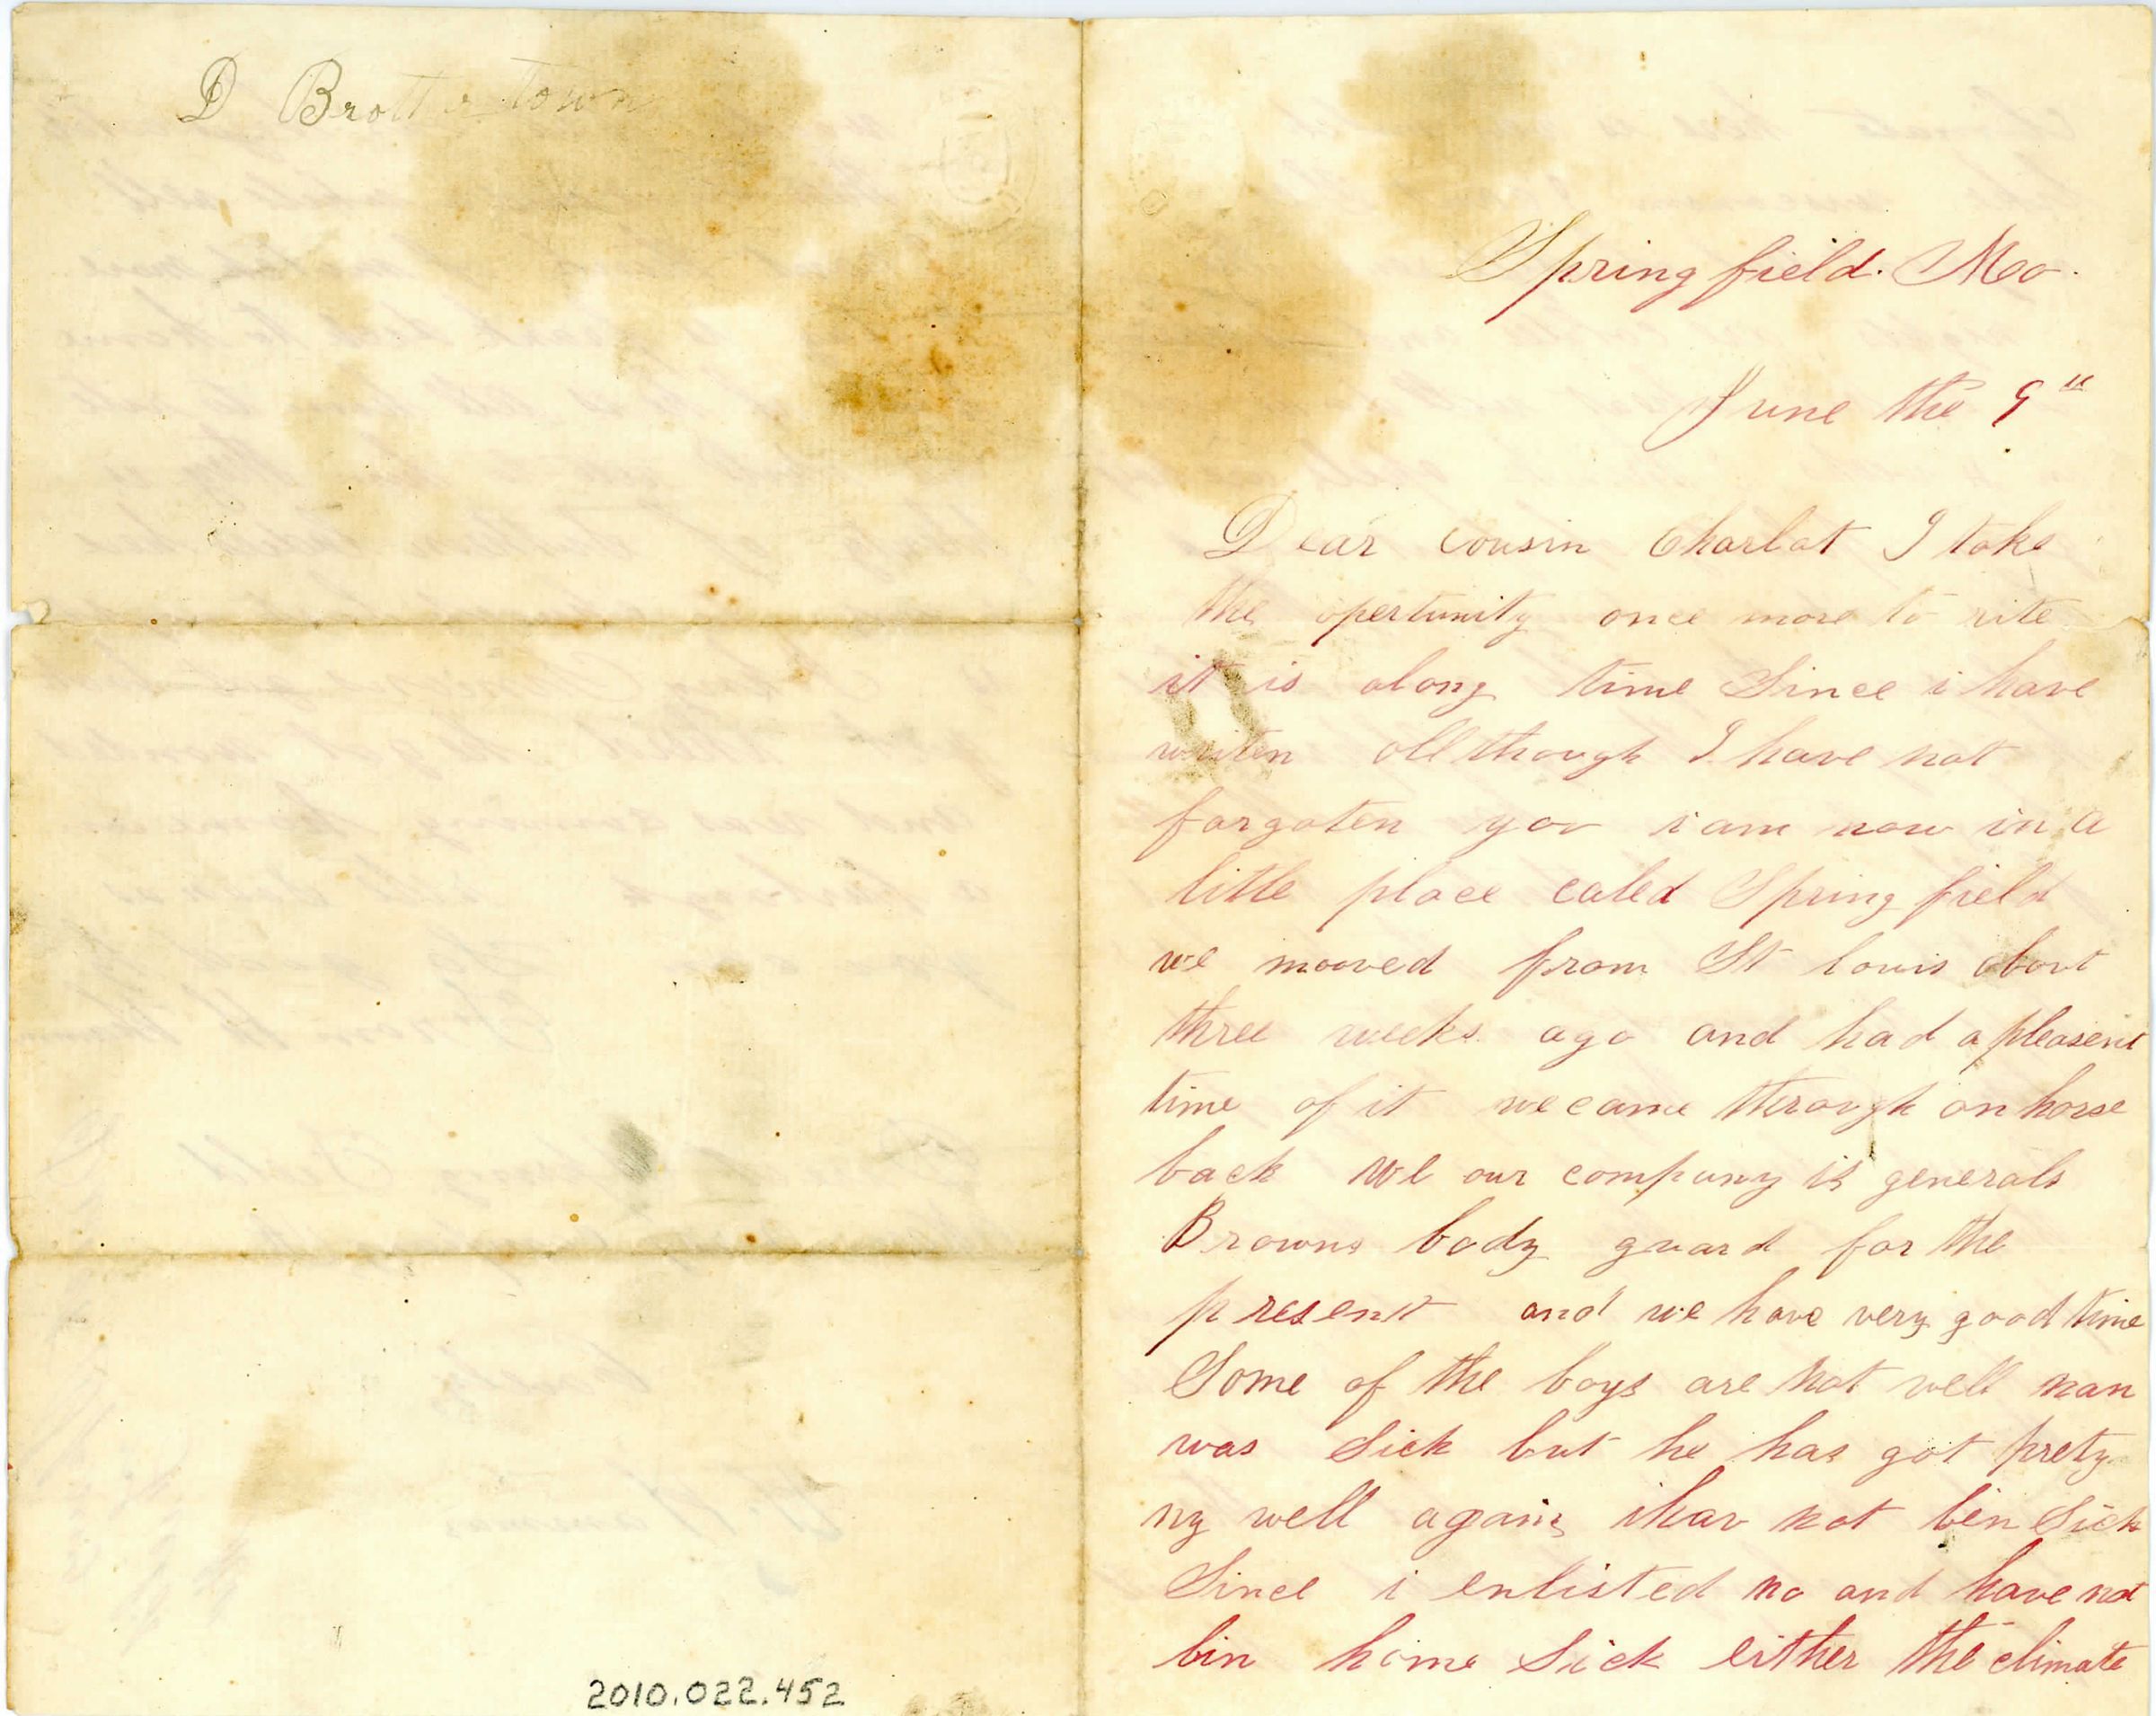 D Brothertown
2010.022.452
Springfield. Mo.
June the 9th
Dear cousin Charlat I take
the opertunity once more to rite
it is along time Since i have
writen allthough I have not
forgoten you i am now in a
little place caled Springfield
we mooved from St louis about
three weeks ago and had a pleasent
time of it we came through on horse
back we our company is generals
Browns body guard for the
present and we have very good time
Some of the boys are not well nan
was Sick but he has got prety
ny well again ihav not bin Sick
Since i enlisted no and have not
bin home Sick either the climate